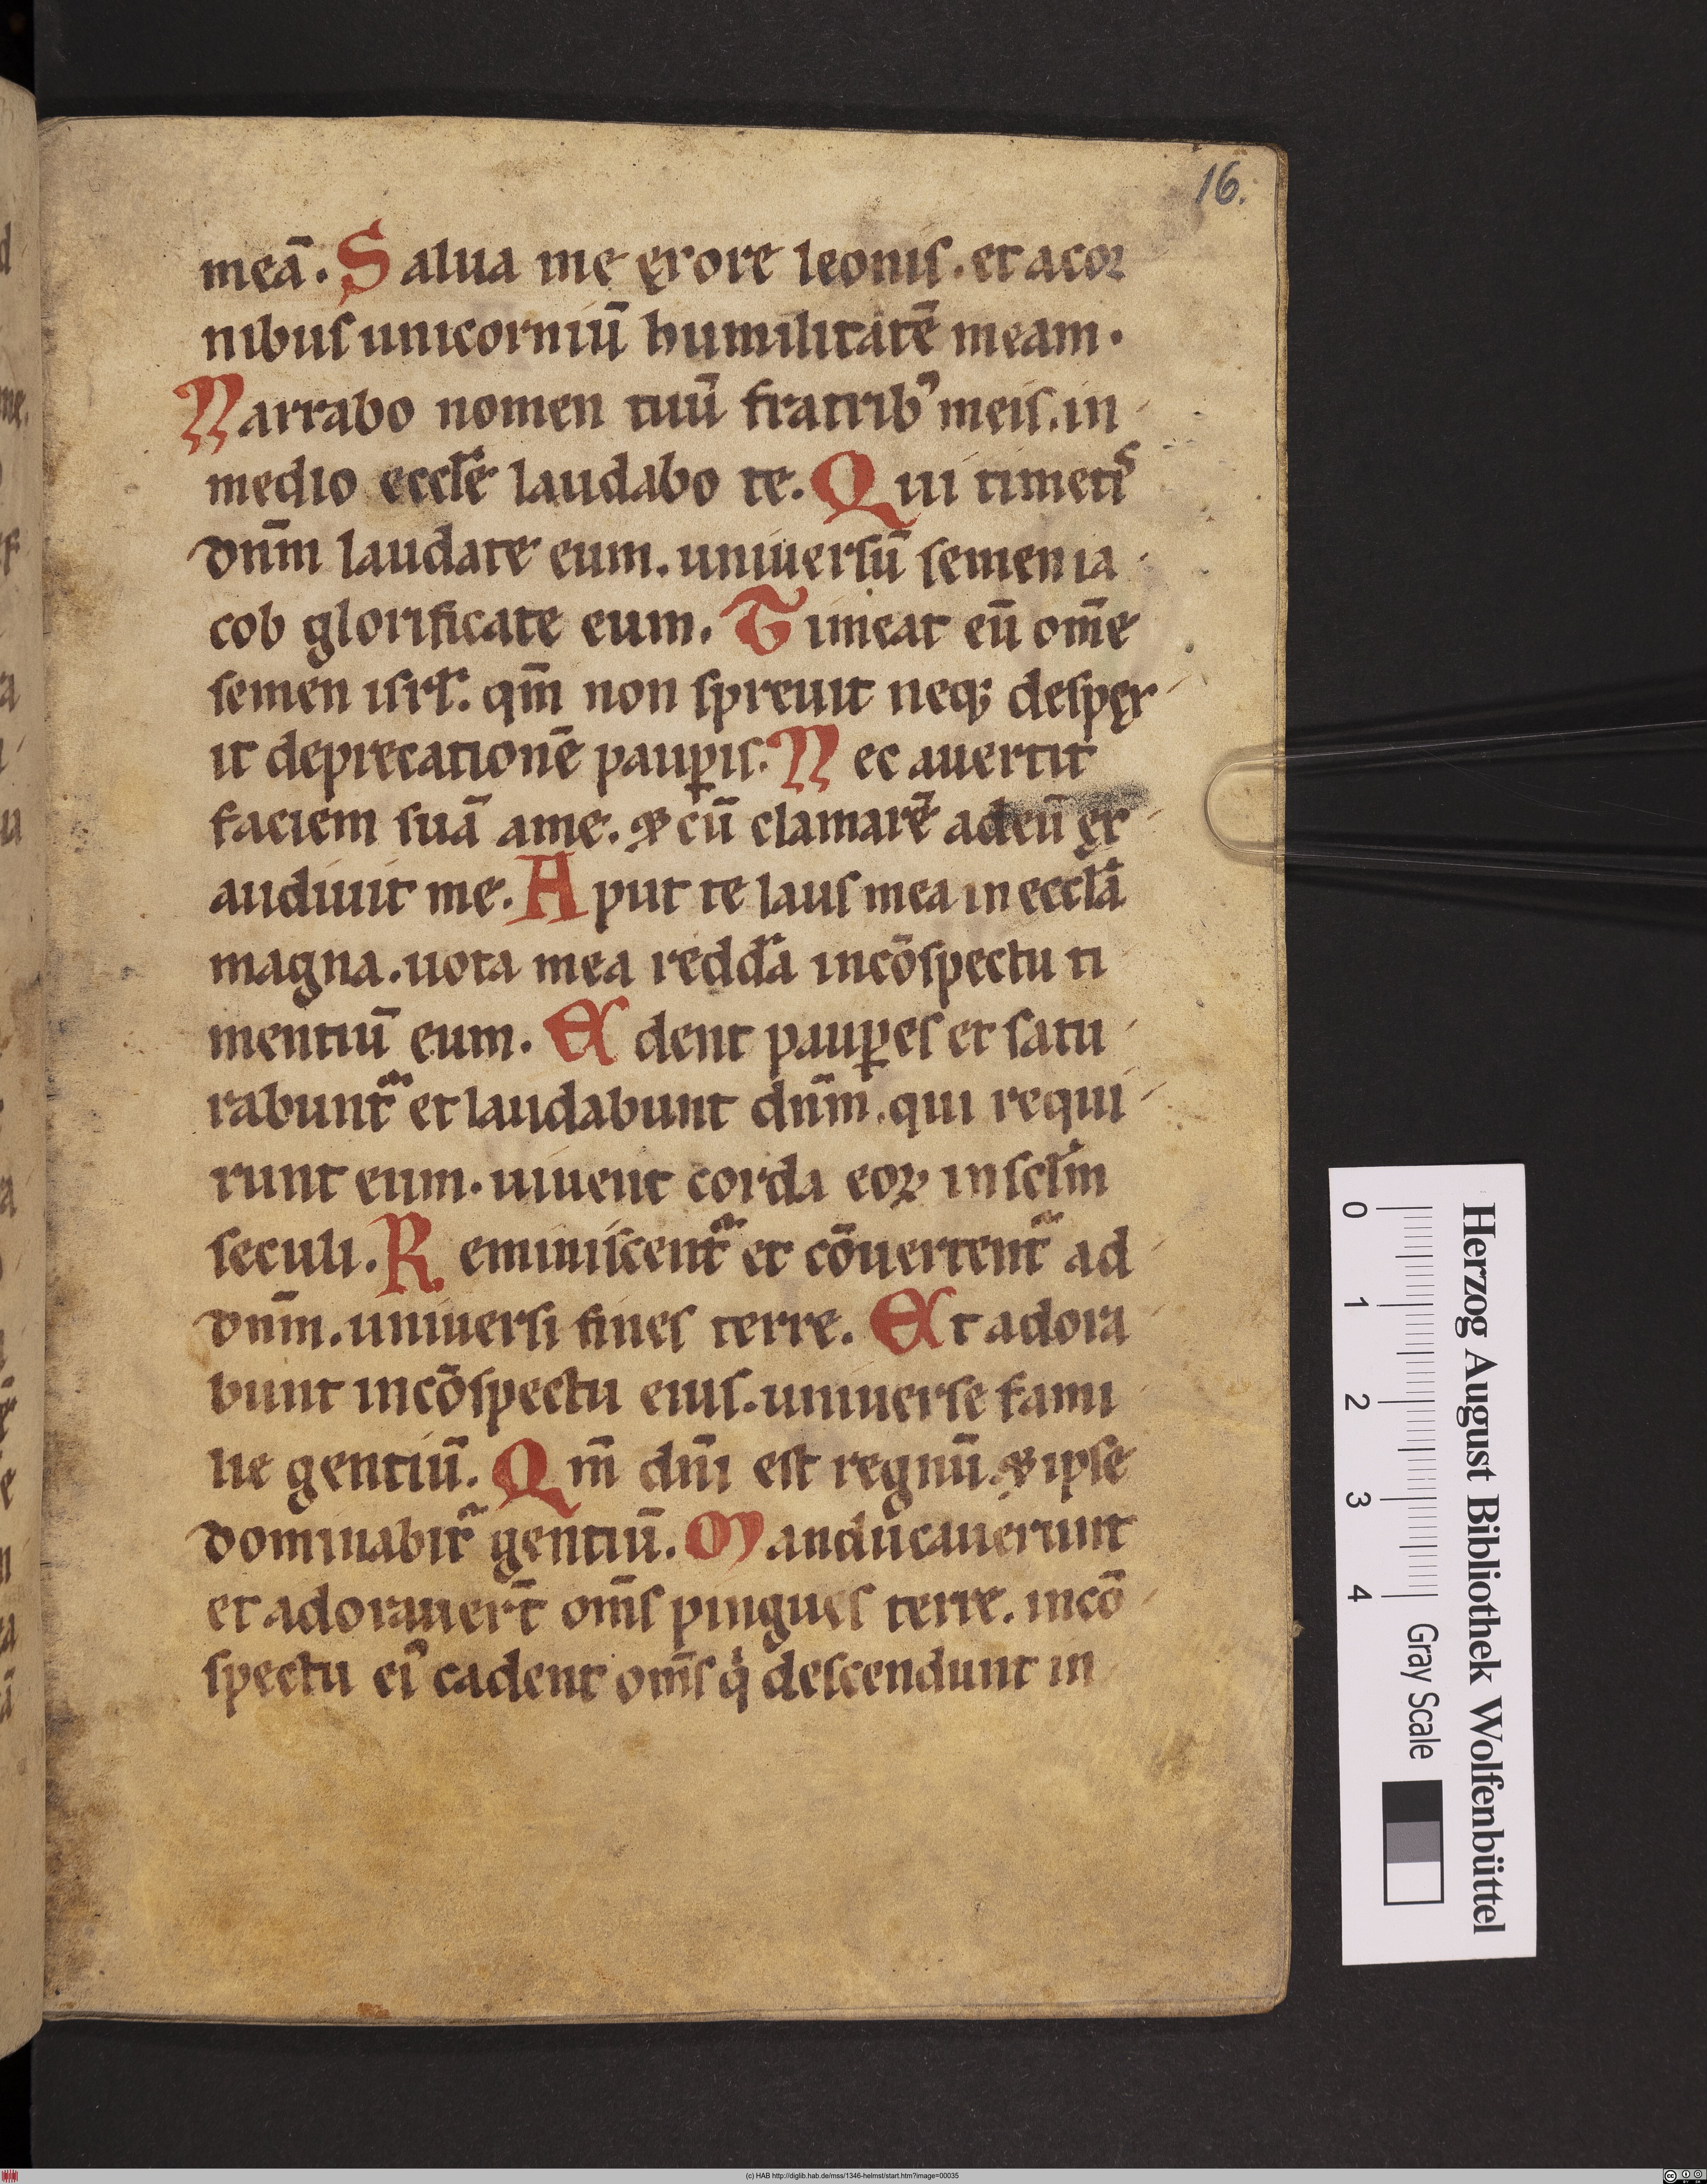 16.
meā. Salua me ęxore leonis. et acor
nibus unicorniū humilitatē meam.
Narrabo nomen tuū fratribꝰ meis. in
medio eccłe laudabo te. Qui timetis
dn̄m laudate eum. uniuersū semen ia
cob glorificate eum. Timeat eū om̄e
semen isrł. qm̄ non spreuit neqꝫ despęx
it deprecationē pauꝑis. Nec auertit
faciem suā ame. ⁊ cū clamarē adeū ęx
audiuit me. Aput te laus mea in eccła
magna. uota mea reddā incōspectu ti
mentiū eum. Edent pauꝑes et satu
rabunt᷑ et laudabunt dn̄m. qui requi
runt eum. uiuent corda eoꝝ insclm̄
seculi. Reminiscent᷑ et cōuertent᷑ ad
dn̄m. uniuersi fines terre. Et adora
bunt incōspectu eius. uniuerse fami
lie gentiū. Qm̄ dn̄i est regnū. ⁊ ipse
dominabit᷑ gentiū. Manducauerunt
et adorauert̄ om̄s pingues terre. incō
spectu eiꝰ cadent om̄s qͥ descendunt in
Herzog August Bibliothek Wolfenbüttel
0 1 2 3 4 Gray Scale
(c) HAB http://diglib.hab.de/mss/1346-helmst/start.htm?image=00035